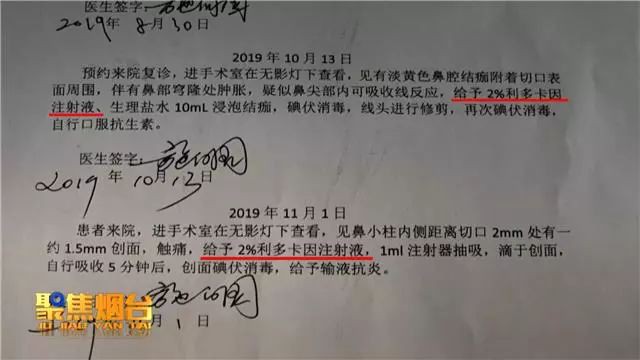 医生签字:
2019 年 8 月 30 日
2019 年 10 月 13 日
预约来院复诊，进手术室在无影灯下查看，见有淡黄色鼻腔结痂附着切口表
面周围，伴有鼻部穹隆处肿胀，疑似鼻尖部内可吸收线反应，给予 2%利多卡因
注射液、生理盐水 10mL 浸泡结痂，碘伏消毒，线头进行修剪，再次碘伏消毒，
自行口服抗生素。
医生签字:
2019 年 10 月 13 日
2019 年 11 月 1 日
患者来院，进手术室在无影灯下查看，见鼻小柱内侧距离切口 2mm 处有一
约 1.5mm 创面，触痛，给予 2%利多卡因注射液，1ml 注射器抽吸，滴于创面，
自行吸收 5 分钟后，创面碘伏消毒，给予输液抗炎。
月 1 日
聚焦烟台
JU JIAO YAN TAI